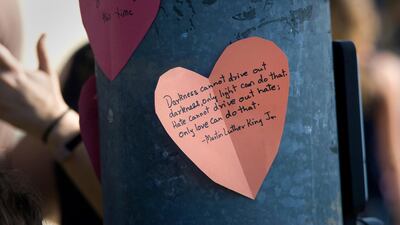 this time
Darkness cannot drive out
darkness, only light can do that.
Hate cannot drive out hate;
only love can do that.
-Martin Luther King Jr.